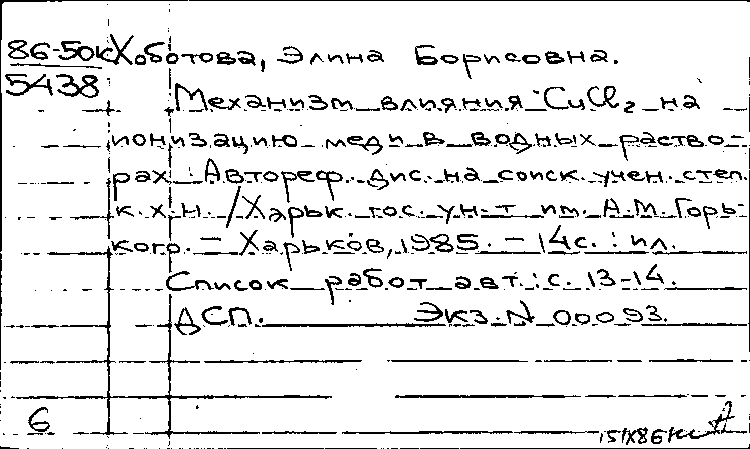 86-50к Хоботова, Элина Борисовна.
5438
Механизм влияния CuCl₂ на
ионизацию меди в водных раство-
рах : Автореф. дис. на соиск. учен. степ.
к.х.н. / Харьк. гос. ун-т им. А.М. Горь-
кого. – Харьков, 1985. – 14с. : ил.
Список работ авт.: с. 13-14.
ДСП. Экз. N 00093.
6